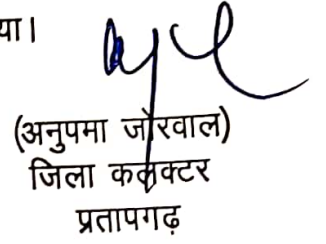 या।
(अनुपमा जोरवाल)
जिला कलक्टर
प्रतापगढ़